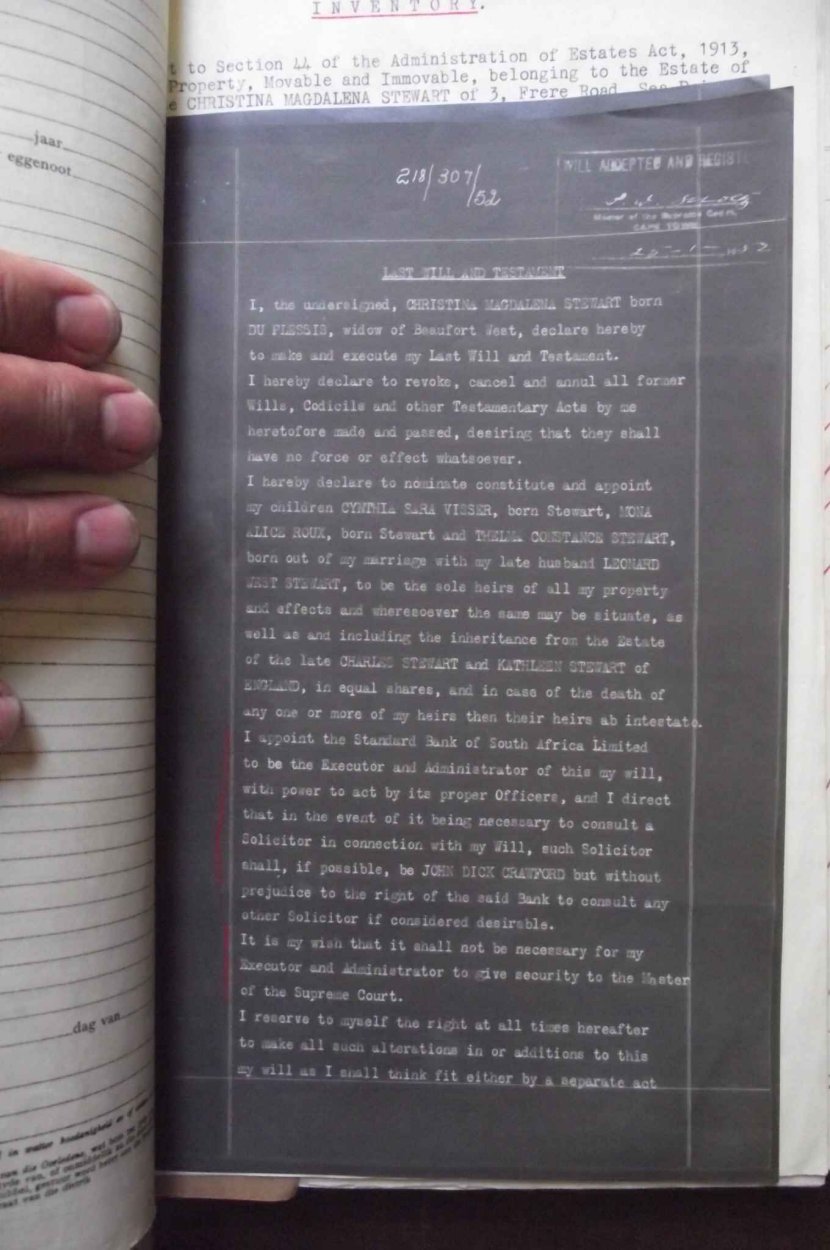 INVENTORY.
t to Section 44 of the Administration of Estates Act, 1913,
Property, Movable and Immovable, belonging to the Estate of
e CHRISTINA MAGDALENA STEWART of 3, Frere Road, Sea P
jaar
eggenoot
218/307/52
WILL ACCEPTED AND REGIST
Master of the Supreme Court,
CAPE TOWN
LAST WILL AND TESTAMENT
I, the undersigned, CHRISTINA MAGDALENA STEWART born
DU PLESSIS, widow of Beaufort West, declare hereby
to make and execute my Last Will and Testament.
I hereby declare to revoke, cancel and annul all former
Wills, Codicils and other Testamentary Acts by me
heretofore made and passed, desiring that they shall
have no force or effect whatsoever.
I hereby declare to nominate constitute and appoint
my children CYNTHIA SARA VISSER, born Stewart, MONA
ALICE ROUX, born Stewart and THELMA CONSTANCE STEWART,
born out of my marriage with my late husband LEONARD
WEST STEWART, to be the sole heirs of all my property
and effects and wheresoever the same may be situate, as
well as and including the inheritance from the Estate
of the late CHARLES STEWART and KATHLEEN STEWART of
ENGLAND, in equal shares, and in case of the death of
any one or more of my heirs then their heirs ab intestato.
I appoint the Standard Bank of South Africa Limited
to be the Executor and Administrator of this my will,
with power to act by its proper Officers, and I direct
that in the event of it being necessary to consult a
Solicitor in connection with my Will, such Solicitor
shall, if possible, be JOHN DICK CRAWFORD but without
prejudice to the right of the said Bank to consult any
other Solicitor if considered desirable.
It is my wish that it shall not be necessary for my
Executor and Administrator to give security to the Master
of the Supreme Court.
I reserve to myself the right at all times hereafter
to make all such alterations in or additions to this
my will as I shall think fit either by a separate act
dag van